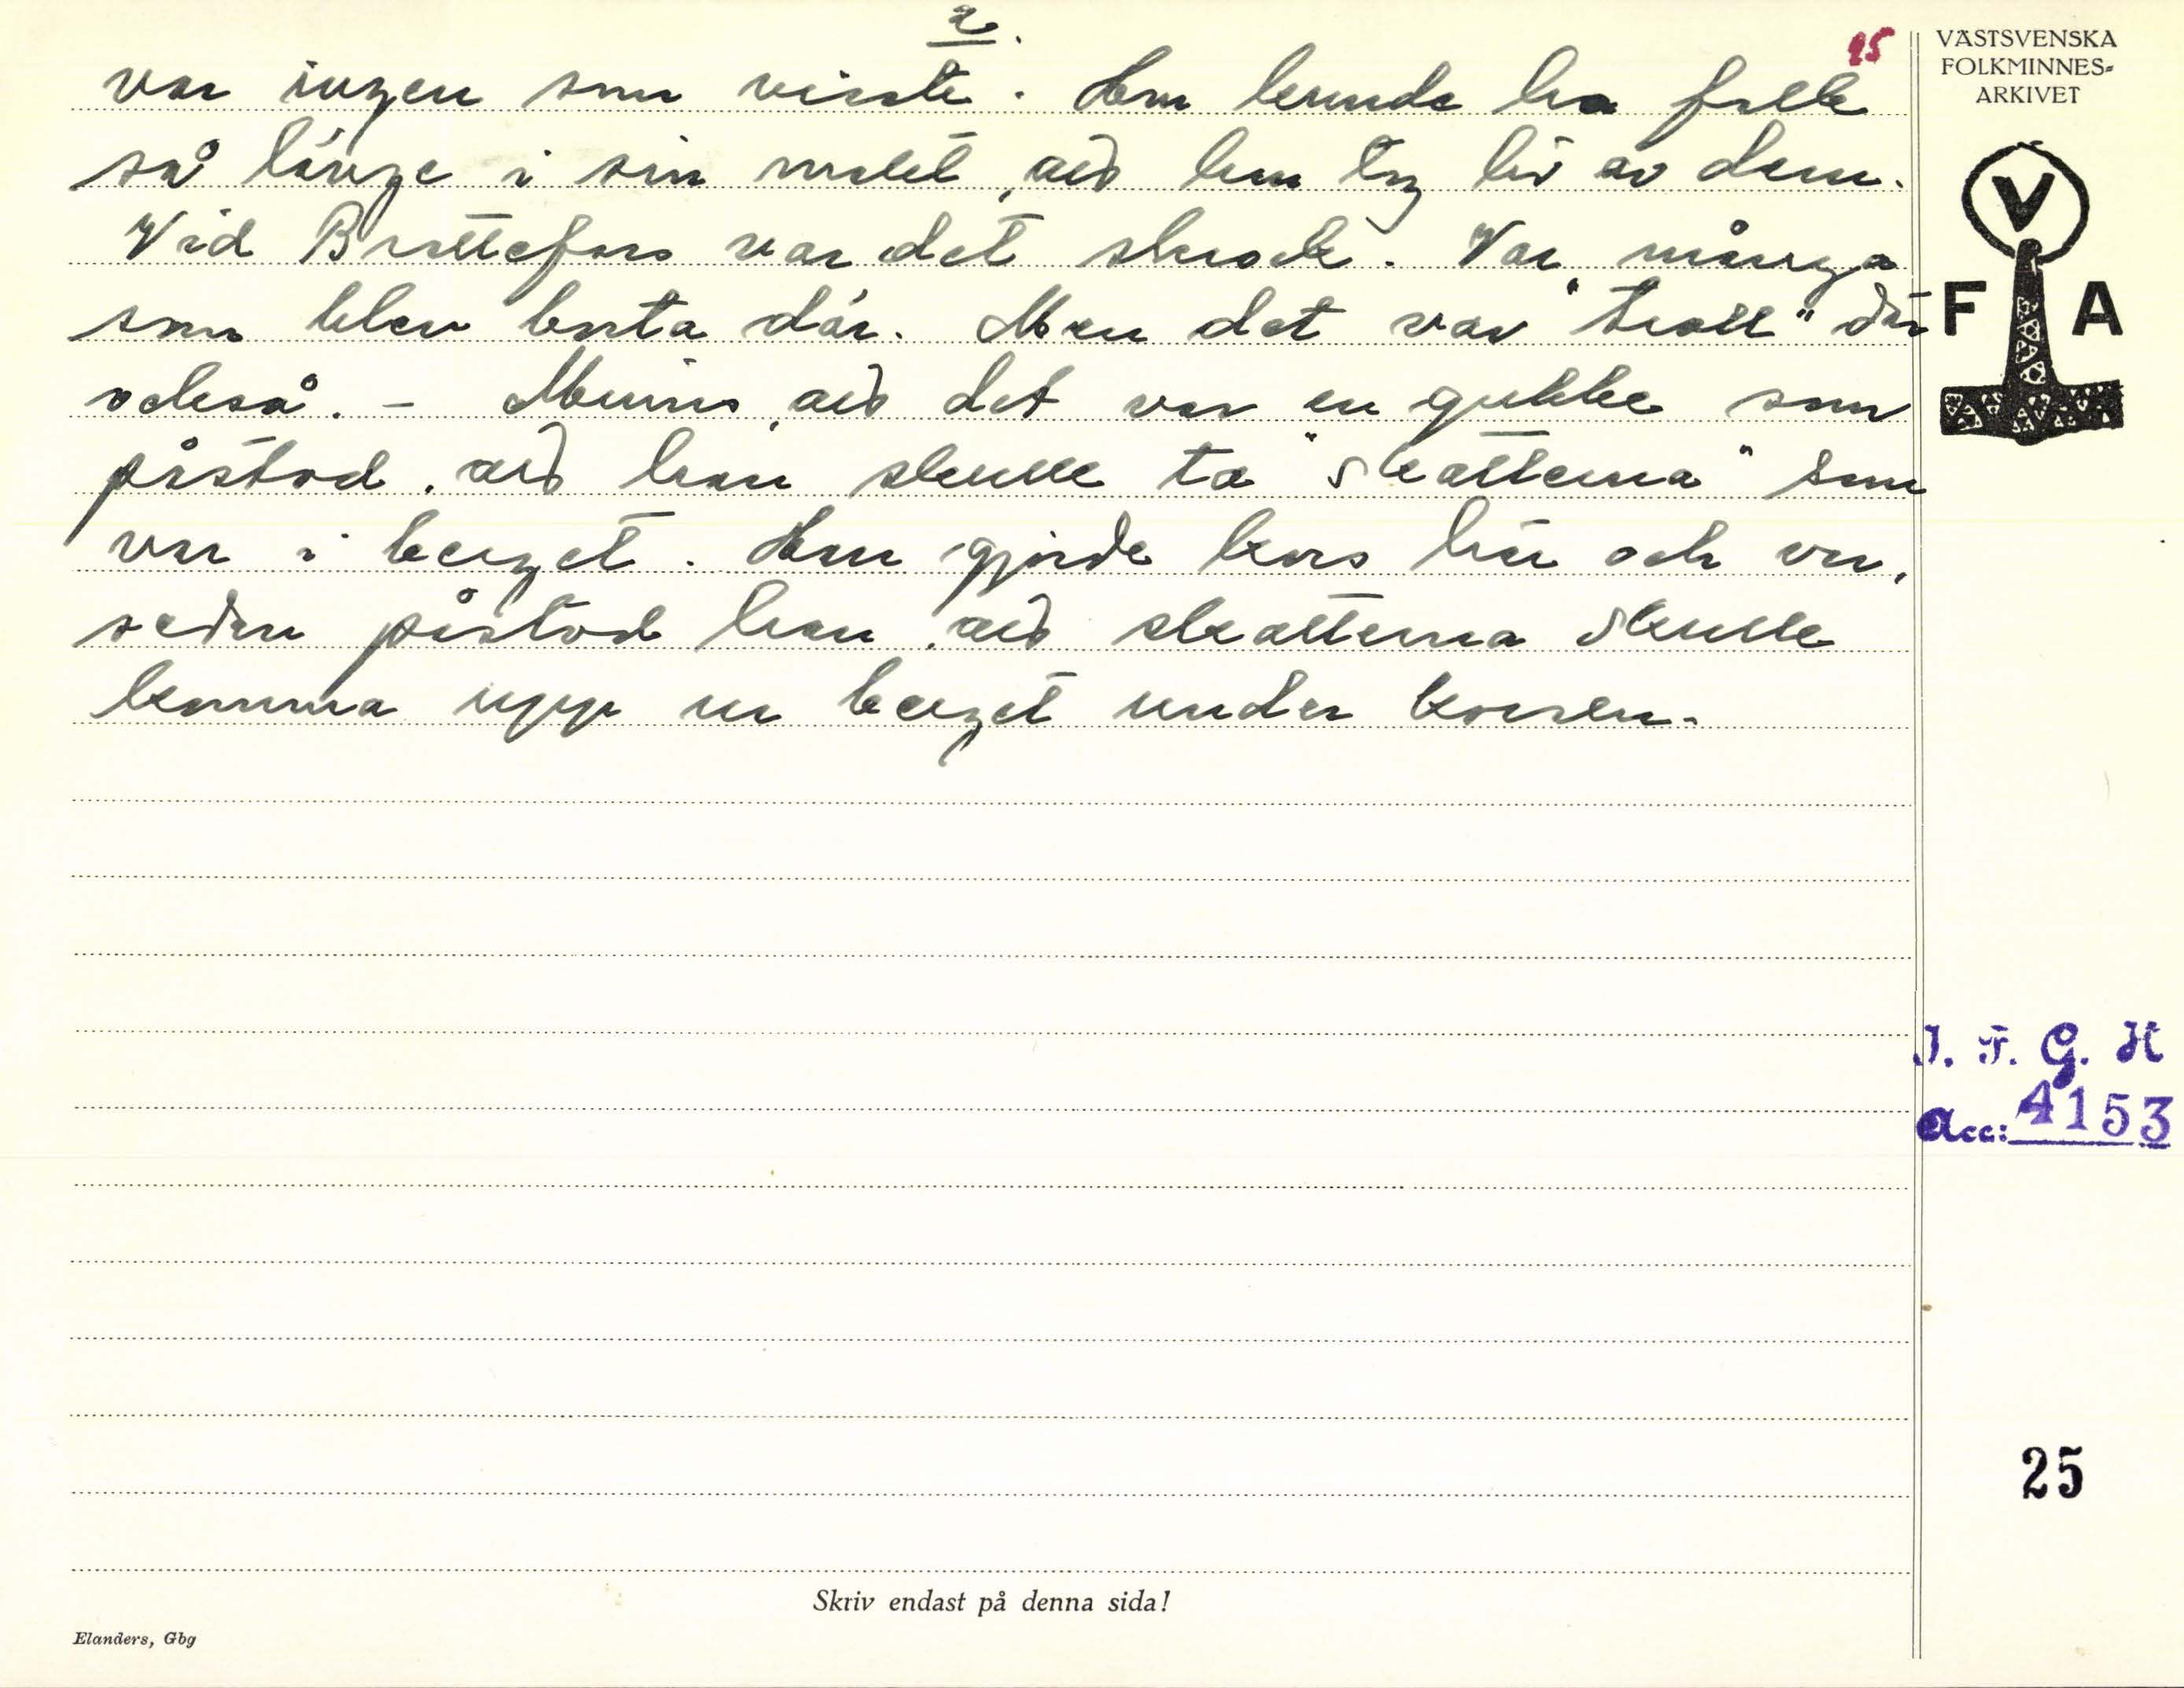 2.
15
var ingen som visste. Hon kunde ha folk
så länge i sin makt, att hon tog liv av dem.
Vid Brattefors var det skrock. Var många
som blev borta där. Men det var "troll" där
också. - Minns, att det var en gubbe som
påstod, att han skulle ta "skatterna" som
var i berget. Han gjorde kors här och var,
sedan påstod han, att skatterna skulle
komma upp ur berget under korsen.
VÄSTSVENSKA
FOLKMINNES-
ARKIVET
V
F A
I. F. G. H
Acc: 4153
25
Skriv endast på denna sida!
Elanders, Gbg